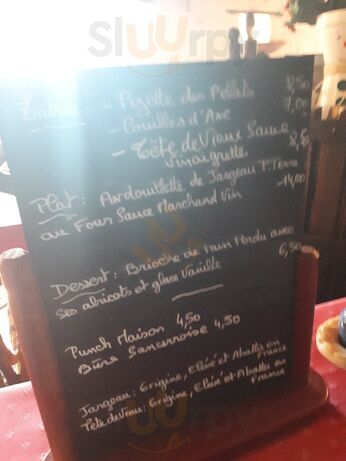 Sluurpy
Entrée : - Pizette des Poëlets 8,50
- Couilles d'Ane 7,00
- Tête de Veau Sauce 8,50
Vinaigrette
Plat : Andouillette de Jargeau P. Terre
au Four Sauce Marchand Vin 14,00
Dessert : Brioche de Pain Perdu avec
ses abricots et glace Vanille 6,50
Punch Maison 4,50
Bière Sancerroise 4,50
Jargeau : Origine, Elévé et Abattu en
France
Tête de Veau : Origine, Elévé et Abattu en
France